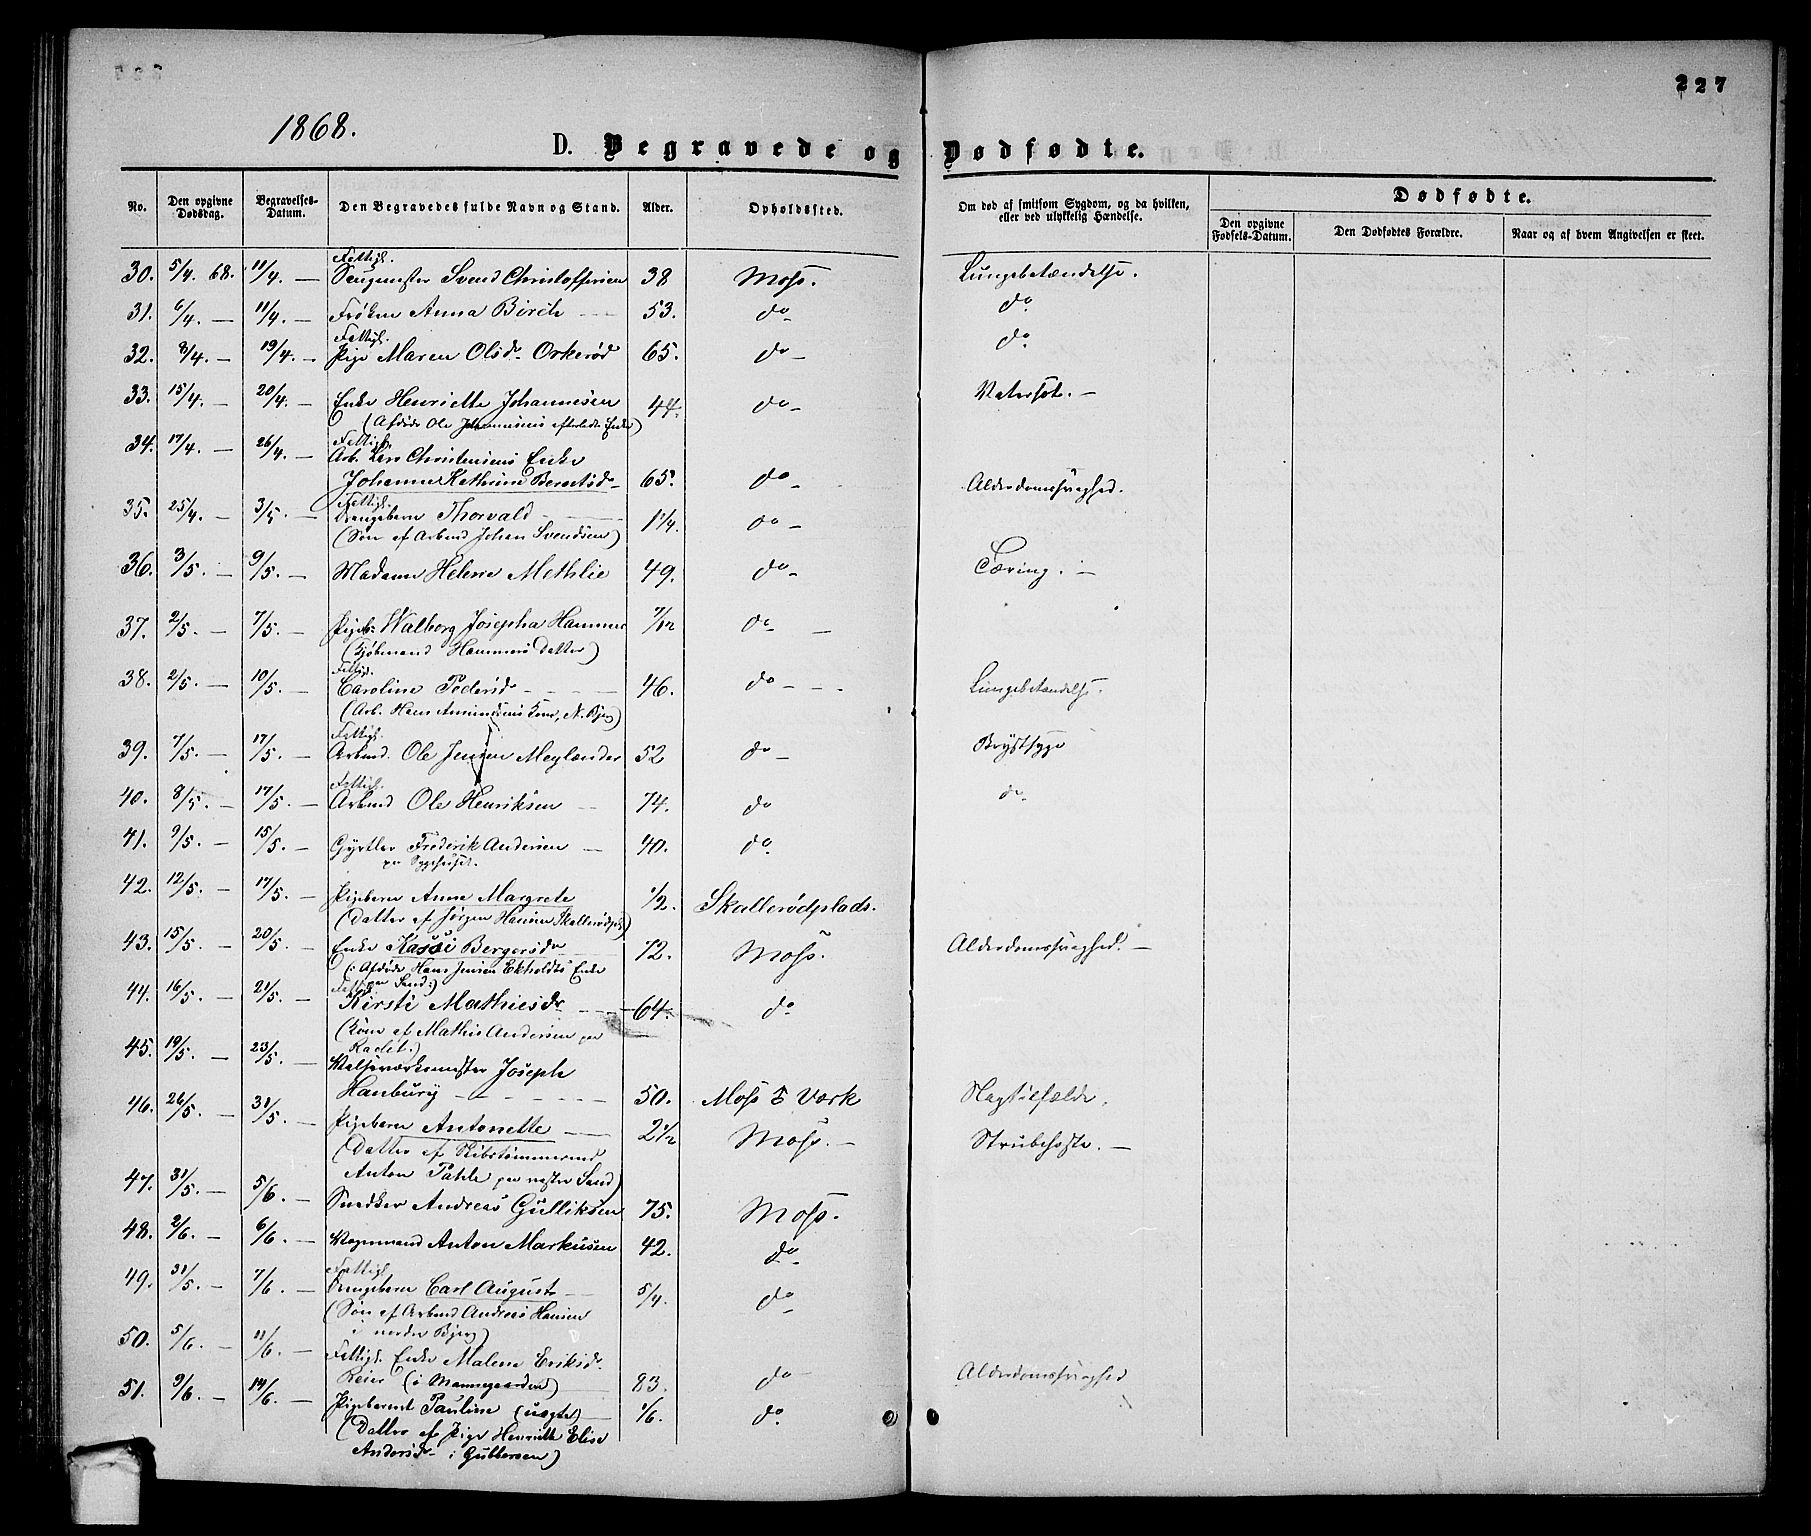 227
1868.
D. Begravede og Dødfødte.
No.
Den opgivne Dødsdag.
Begravelses-Datum.
Den Begravedes fulde Navn og Stand.
Alder.
Opholdssted.
Om død af smitsom Sygdom, og da hvilken, eller ved ulykkelig Hændelse.
Dødfødte.
Den opgivne Fødsels-Datum.
Den Dødfødtes Forældre.
Naar og af hvem Angivelsen er skeet.
Fattigl.
30. 5/4. 68. 11/4. — Svend Christoffersen 38 Moss. Lungebetændelse.
31. 6/4. — 11/4. — Frøken Anna Birch 53. do — do
Fattigl.
32. 8/4. — 19/4. — Pige Maren Olsdr Orkerød 65. do — do
33. 15/4. — 20/4. — Enke Henriette Johannesen 44. do — Vatersot. —
(Afdøde Ole Johannesens efterladte Enke)
34. 17/4. — 26/4. — Fattigl.
Arb. Lars Christensens Enke
Johanne Kathrine Berntsdr 65. do — Alderdomssvaghed.
Fattigl.
35. 25/4. — 3/5. — Drengebarn Thorvald 1 1/4. do —
(Søn af Arbmd Johan Svendsen)
36. 3/5. — 9/5. — Madame Helene Methlie 49. do — Tæring. —
37. 2/5. — 7/5. — Pigeb. Walborg Josepha Hammer 7/12 do —
(Kjøbmand Hammers Datter)
Fattigl.
38. 2/5. — 10/5. — Caroline Pedersdr 46. do — Lungebetændelse.
(Arb. Hans Amundsens Kone, N. Bjerg)
Fattigl.
39. 7/5. — 17/5. — Arbmd. Ole Jensen Meylænder 52 do — Brystsyge
Fattigl.
40. 8/5. — 17/5. — Arbmd Ole Henriksen 74. do do
41. 9/5. — 15/5. — Gjørtler Frederik Andersen 40. do
paa Sygehuset.
42. 12/5. — 17/5. — Pigebarn Anne Margrete 1/2. Skallerødplads.
(Datter af Jørgen Hansen Skallerødpl.)
43. 15/5. — 20/5. — Enke Kassi Bergersdr 72. Moss. Alderdomssvaghed. —
(: Afdøde Hans Jensen Ekholdts Enke
paa Sand:)
44. 16/5. — 21/5. — Fattigl.
Kirsti Mathiesdr 64. do
(Kone af Mathis Andersen paa
Rådet.)
45. 19/5. — 23/5. — Valseværksmester Joseph
Hanbury 50. Moss Værk Slagtilfælde.
46. 26/5. — 31/5. — Pigebarn Antonette 2 1/2 Moss. — Strubehoste. —
(Datter af Skibstømmermd
Anton Pahle paa nestre Sand)
47. 31/5. — 5/6. — Snedker Andreas Gulliksen 75. Moss.
48. 2/6. — 6/6. — Vognmand Anton Markusen 42. do
Fattigl.
49. 31/5. — 7/6. — Drengebarn Carl August 5/4. do
(Søn af Arbmd Andreas Hansen
i nordre Bjerg)
50. 5/6. — 11/6. — Fattigl. Enke Malene Eriksdr
Leier (i Mannegaarden) 83. do Alderdomssvaghed
51. 9/6. — 14/6. — Pigebarnet Pauline (uægte) 1/6. do
(Datter af Pige Henriette Elise
Andersdr i Gubberøen)